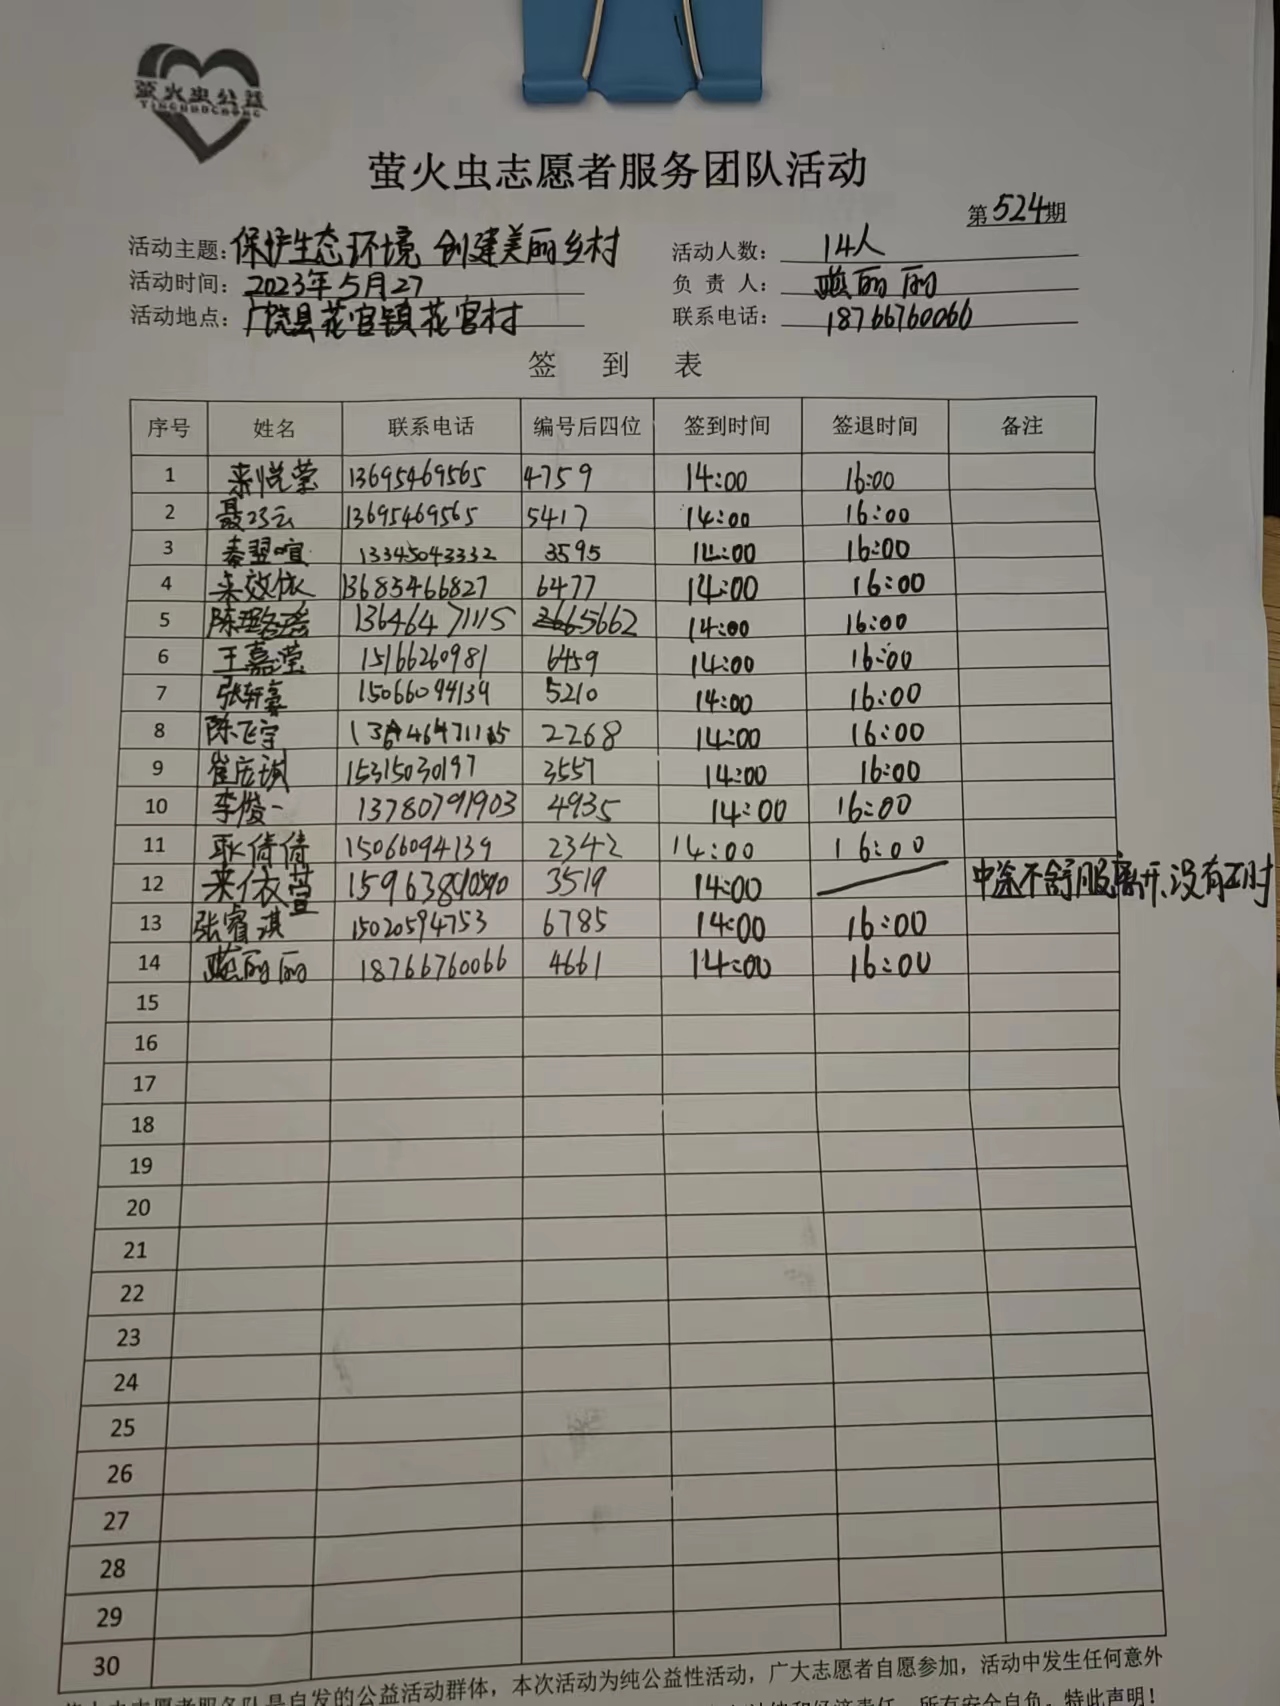 萤火虫公益
YINGHUOCHONG
萤火虫志愿者服务团队活动
第524期
活动主题：保护生态环境 创建美丽乡村 活动人数：14人
活动时间：2023年5月27 负责人：丽丽
活动地点：广饶县花官镇花官村 联系电话：18766760066
签到表
序号 姓名 联系电话 编号后四位 签到时间 签退时间 备注
1 来悦莹 13695469565 4759 14:00 16:00
2 聂巧云 13695469565 5417 14:00 16:00
3 秦翌喧 13345043332 3595 14:00 16:00
4 来效依 13685466827 6477 14:00 16:00
5 陈 13646471115 5662 14:00 16:00
6 王嘉滢 15166260981 6459 14:00 16:00
7 张轩豪 15066094139 5210 14:00 16:00
8 陈飞宇 13646471115 2268 14:00 16:00
9 崔应诚 15315030197 3557 14:00 16:00
10 李俊一 13780791903 4935 14:00 16:00
11 耿倩倩 15066094139 2342 14:00 16:00
12 来依萱 3519 14:00 中途不舒服离开,没有工时
13 张睿淇 15020594753 6785 14:00 16:00
14 丽丽 18766760066 4661 14:00 16:00
15
16
17
18
19
20
21
22
23
24
25
26
27
28
29
30
志愿者服务队是自发的公益活动群体，本次活动为纯公益性活动，广大志愿者自愿参加，活动中发生任何意外
经济责任，所有安全自负，特此声明！